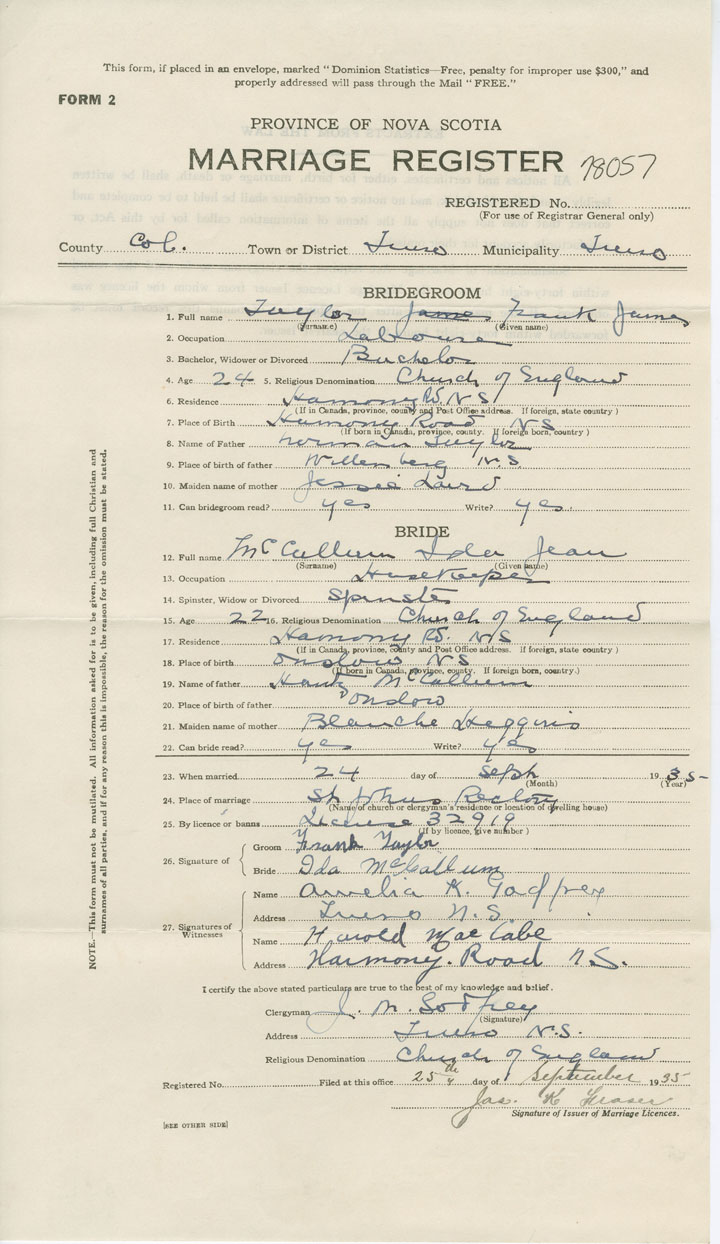 This form, if placed in an envelope, marked "Dominion Statistics—Free, penalty for improper use $300," and
properly addressed will pass through the Mail "FREE."
FORM 2
PROVINCE OF NOVA SCOTIA
MARRIAGE REGISTER 78057
REGISTERED No.
(For use of Registrar General only)
County Col. Town or District Truro Municipality Truro
BRIDEGROOM
1. Full name Taylor James Frank James
(Surname) (Given name)
2. Occupation Labourer
3. Bachelor, Widower or Divorced Bachelor
4. Age 24 5. Religious Denomination Church of England
6. Residence Harmony Rd. N S
(If in Canada, province, county and Post Office address. If foreign, state country )
7. Place of Birth Harmony Road N S
(If born in Canada, province, county. If foreign born, country )
8. Name of Father Norman Taylor
9. Place of birth of father N.S.
10. Maiden name of mother Jessie Laird
11. Can bridegroom read? yes Write? yes
BRIDE
12. Full name McCallum Ida Jean
(Surname) (Given name)
13. Occupation Housekeeper
14. Spinster, Widow or Divorced Spinster
15. Age 22 16. Religious Denomination Church of England
17. Residence Harmony Rd. N S
(If in Canada, province, county and Post Office address. If foreign, state country )
18. Place of birth Onslow N S
(If born in Canada, province, county. If foreign born, country.)
19. Name of father McCallum
20. Place of birth of father Onslow
21. Maiden name of mother Blanche Heggins
22. Can bride read? yes Write? yes
23. When married 24 day of Sept 1935
(Month) (Year)
24. Place of marriage St Johns Rectory
(Name of church or clergyman's residence or location of dwelling house)
25. By licence or banns License 32919
(If by licence, give number )
26. Signature of
Groom Frank Taylor
Bride Ida McCallum
27. Signatures of Witnesses
Name Amelia K. Godfrey
Address Truro N.S.
Name Harold MacCabe
Address Harmony. Road N.S.
I certify the above stated particulars are true to the best of my knowledge and belief.
Clergyman J. M. Godfrey
(Signature)
Address Truro N.S.
Religious Denomination Church of England
Registered No. Filed at this office 25th day of September 1935
Jas. K Fraser
Signature of Issuer of Marriage Licences.
[SEE OTHER SIDE]
NOTE.—This form must not be mutilated. All information asked for is to be given, including full Christian and
surnames of all parties, and if for any reason this is impossible, the reason for the omission must be stated.